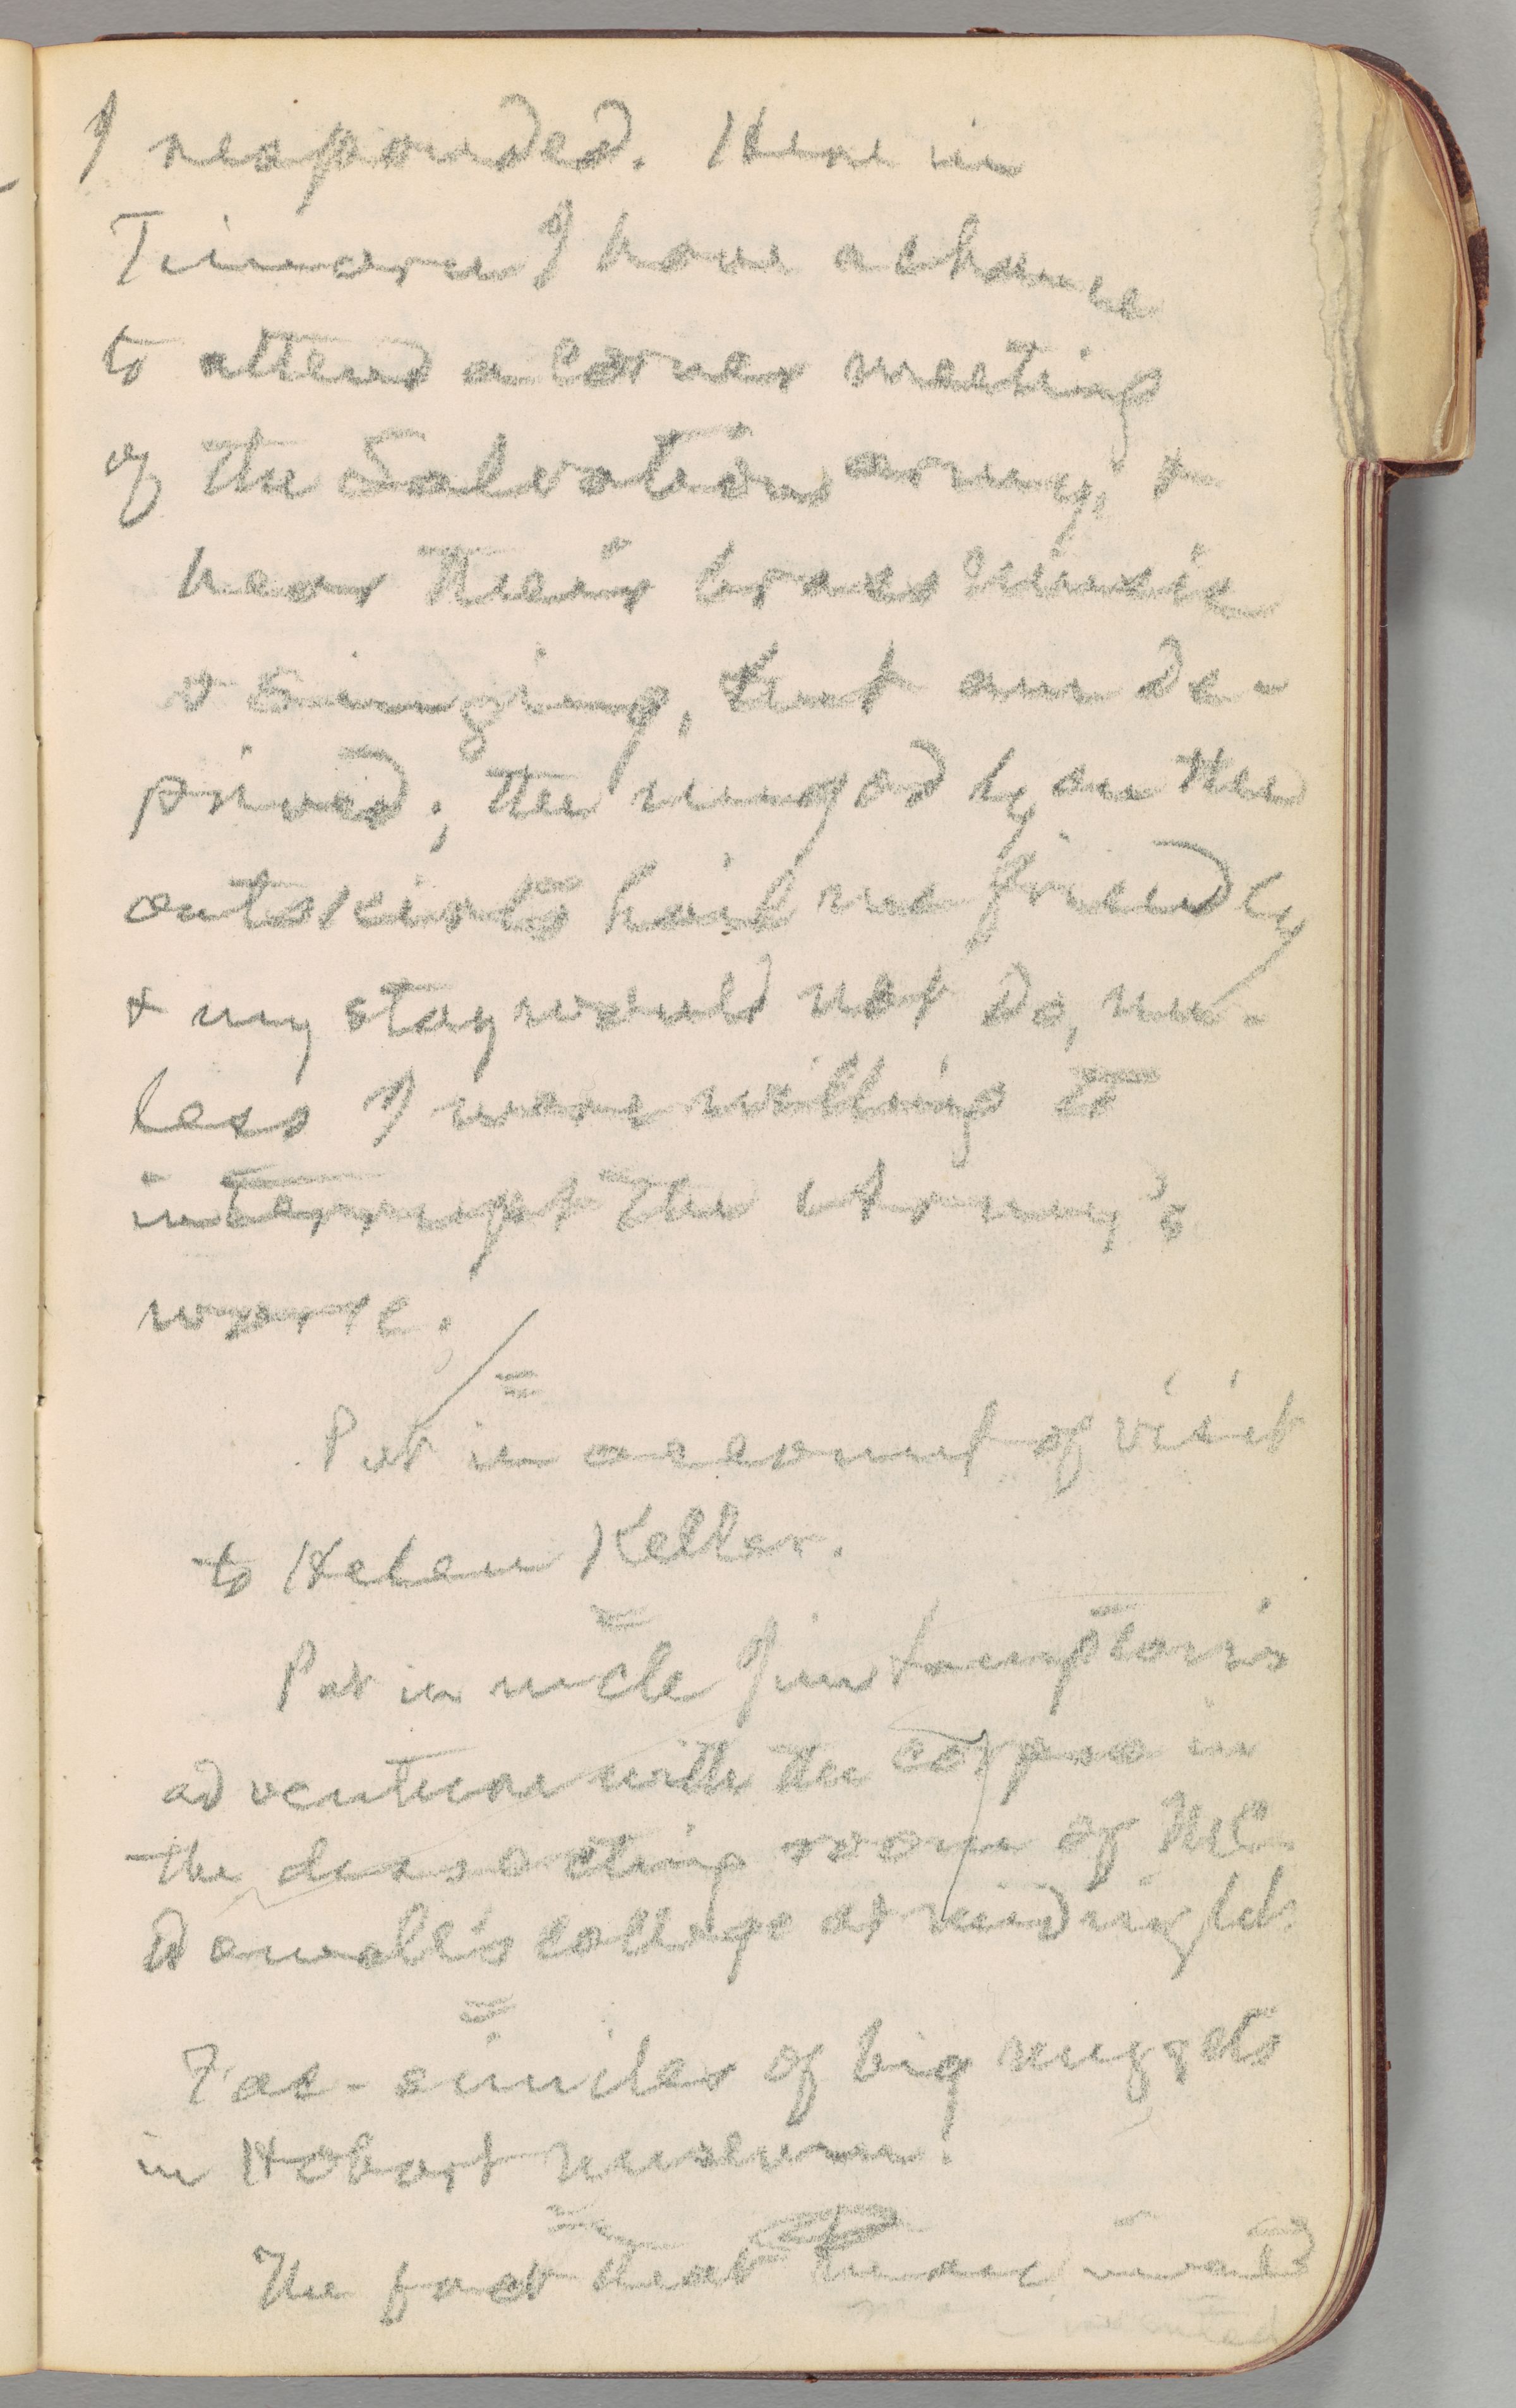 I responded. Here in
Timaru I have a chance
to attend a corner meeting
of the Salvation army, &
hear their brass music
& singing, but am de-
prived; the by on the
outskirts hail me friendly
& my stay would not do, un-
less I were willing to
interrupt the Army's
work.
=
Put in account of visit
to Helen Keller.
=
Put in uncle Jim Lampton's
adventure with the corpse in
the dissecting room of Mc-
Dowell's college at midnight.
=
Fac-similes of big nuggets
in Hobart museum.
=
The fact that man invented
man invented